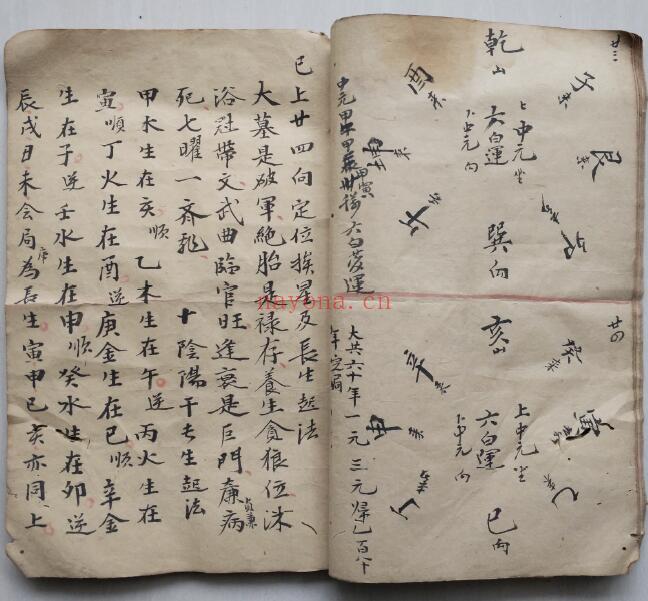 廿三
子来
艮来
乾山
上中元坐
六白運
下中元向
巽向
酉来
午来
廿四
癸来
寅
乙
亥山
上中元坐
六白運
下中元向
巳向
辛来
申来
大共六十年一元 三元歸乙百八十
年定局
已上廿四向定位挨星及長生起法
大墓是破軍絶胎是禄存養生貪狼位沐
浴冠帶文武曲臨官旺逢衰是巨門廉病
貞兼
死七曜一齊飛 十陰陽干長生起法
甲木生在亥順乙木生在午逆丙火生在
寅順丁火生在酉逆庚金生在巳順辛金
生在子逆壬水生在申順癸水生在卯逆
辰戌未会局為長生寅申巳亥亦同上
nayona.cn